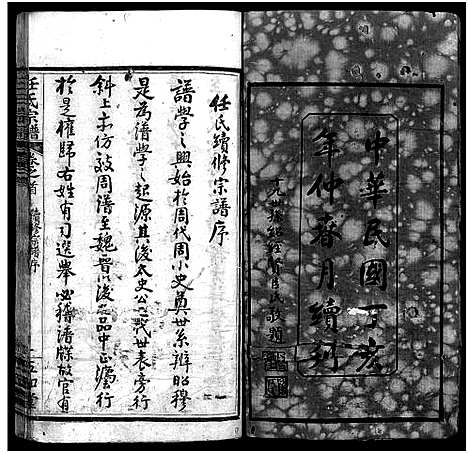 中華民國丁亥
年仲春月續刊
任氏續修宗譜序
譜學之興始於周代周小史奠世系辨昭穆
是為譜學之起源其後太史公之三代世表旁行
斜上亦仿效周譜至魏晉以後九品中正濫行
於是權歸右姓有司選舉必稽譜牒故官有
任氏宗譜
卷之首
續修宗譜序